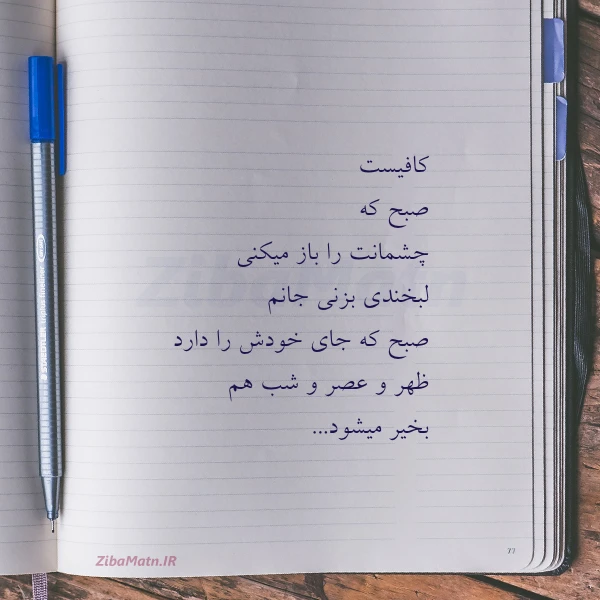 کافیست
صبح که
چشمانت را باز میکنی
لبخندی بزنی جانم
صبح که جای خودش را دارد
ظهر و عصر و شب هم
بخیر میشود...
ZibaMatn.IR